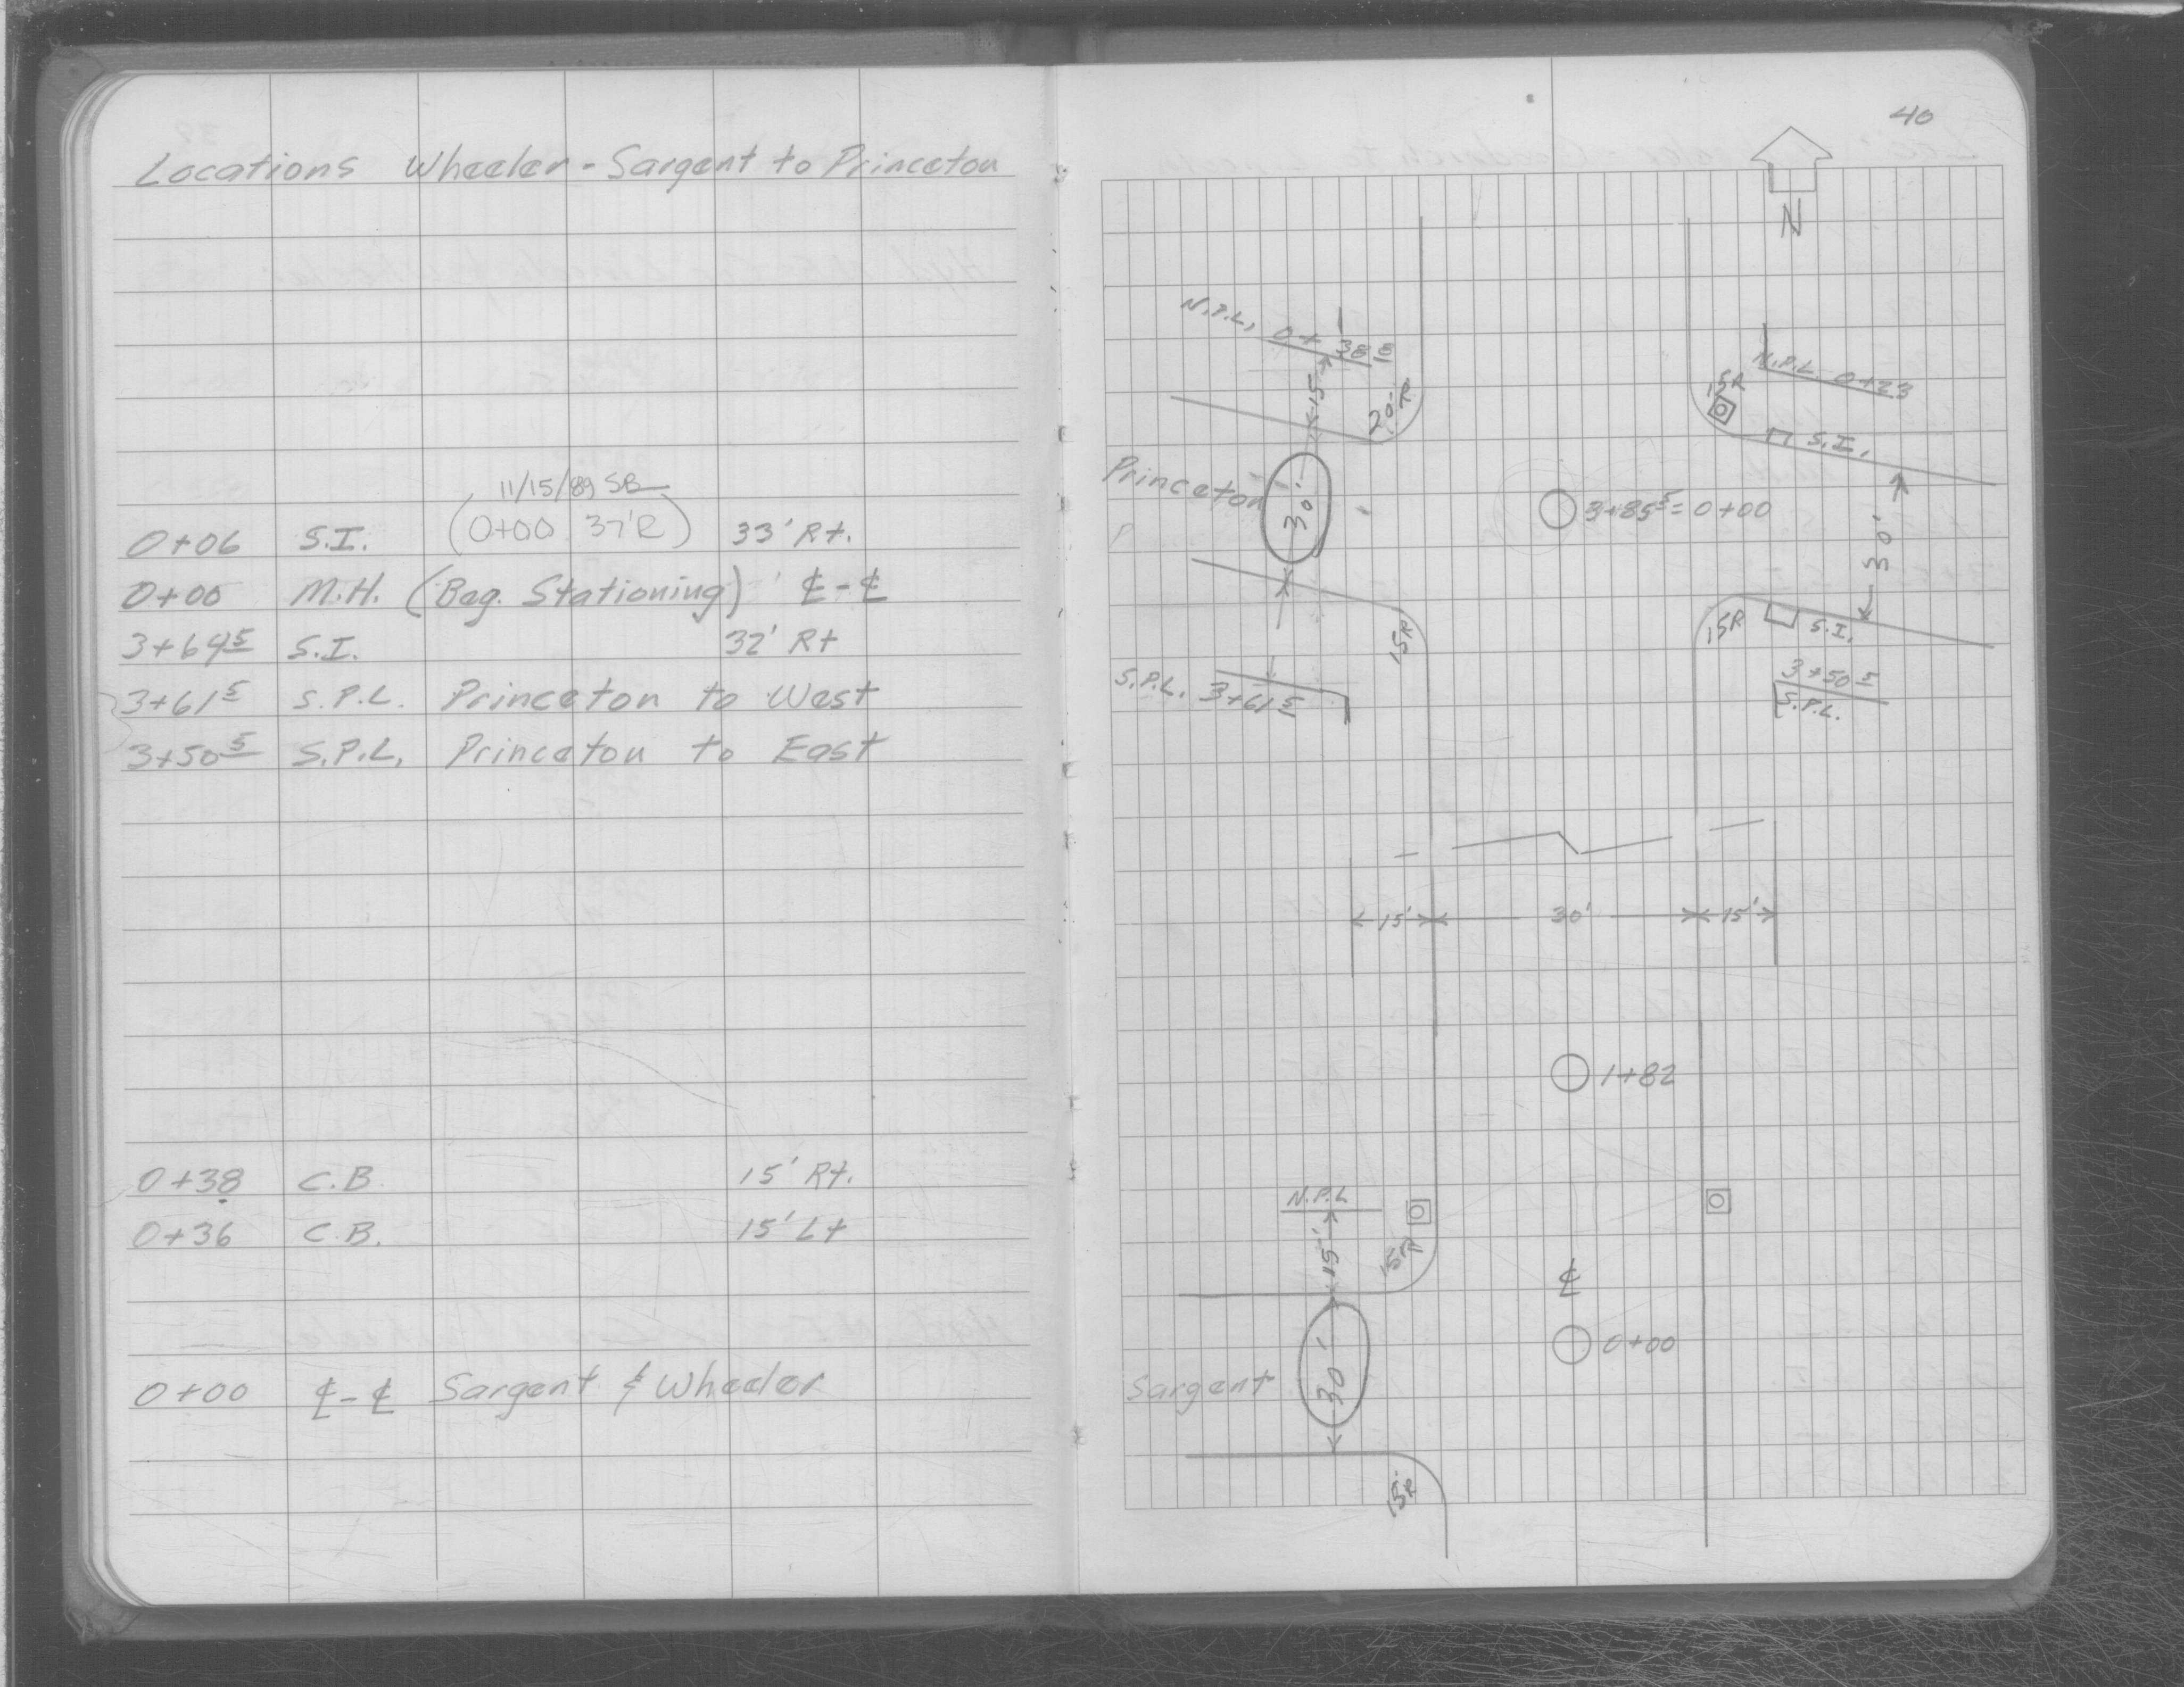 Locations Wheeler - Sargent to Princeton
11/15/89 SB
0+06 S.I. (0+00 37'R) 33' Rt.
0+00 M.H. (Beg. Stationing) ℄-℄
3+64⁵ S.I. 32' Rt
3+61⁵ S.P.L. Princeton to West
3+50⁵ S.P.L. Princeton to East
0+38 C.B. 15' Rt.
0+36 C.B. 15' Lt
0+00 ℄-℄ Sargent & Wheeler
40
N
N.P.L. 0+38⁵
15'
20'R
15R
N.P.L. 0+23
S.I.
Princeton
30'
3+85⁵ = 0+00
30'
15R
15R
S.I.
S.P.L. 3+61⁵
3+50⁵
S.P.L.
15' 30' 15'
1+82
N.P.L
15'
15R
℄
0+00
Sargent
30'
15R